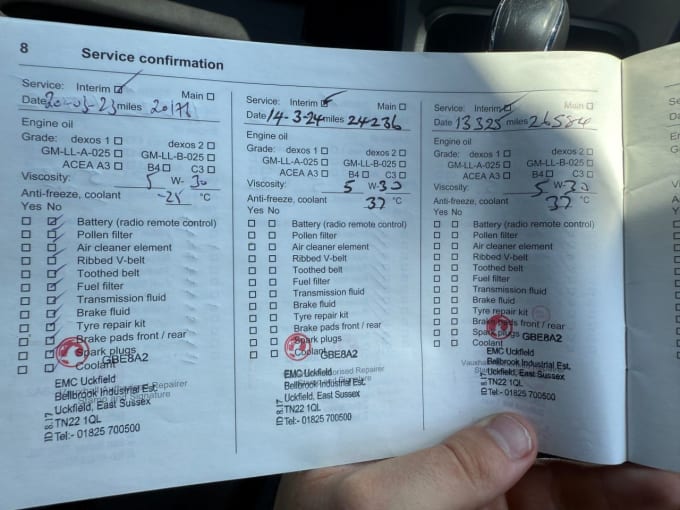 8 Service confirmation
Service: Interim Main
Date miles 20176
Engine oil
Grade: dexos 1 dexos 2
GM-LL-A-025 GM-LL-B-025
ACEA A3 B4 C3
Viscosity: 5 W- 30
Anti-freeze, coolant -25 °C
Yes No
Battery (radio remote control)
Pollen filter
Air cleaner element
Ribbed V-belt
Toothed belt
Fuel filter
Transmission fluid
Brake fluid
Tyre repair kit
Brake pads front / rear
Spark plugs
Coolant
GBE8A2
EMC Uckfield
Bellbrook Industrial Est,
Uckfield, East Sussex
TN22 1QL
Tel:- 01825 700500
ID 8.17
Service: Interim Main
Date 14-3-24 miles 24236
Engine oil
Grade: dexos 1 dexos 2
GM-LL-A-025 GM-LL-B-025
ACEA A3 B4 C3
Viscosity: 5 W-30
Anti-freeze, coolant 37 °C
Yes No
Battery (radio remote control)
Pollen filter
Air cleaner element
Ribbed V-belt
Toothed belt
Fuel filter
Transmission fluid
Brake fluid
Tyre repair kit
Brake pads front / rear
Spark plugs
Coolant
GBE8A2
EMC Uckfield
Bellbrook Industrial Est,
Uckfield, East Sussex
TN22 1QL
Tel:- 01825 700500
ID 8.17
Service: Interim Main
Date 13325 miles 26584
Engine oil
Grade: dexos 1 dexos 2
GM-LL-A-025 GM-LL-B-025
ACEA A3 B4 C3
Viscosity: 5 W-30
Anti-freeze, coolant 37 °C
Yes No
Battery (radio remote control)
Pollen filter
Air cleaner element
Ribbed V-belt
Toothed belt
Fuel filter
Transmission fluid
Brake fluid
Tyre repair kit
Brake pads front / rear
Spark plugs
Coolant
GBE8A2
EMC Uckfield
Bellbrook Industrial Est,
Uckfield, East Sussex
TN22 1QL
Tel:- 01825 700500
ID 8.17